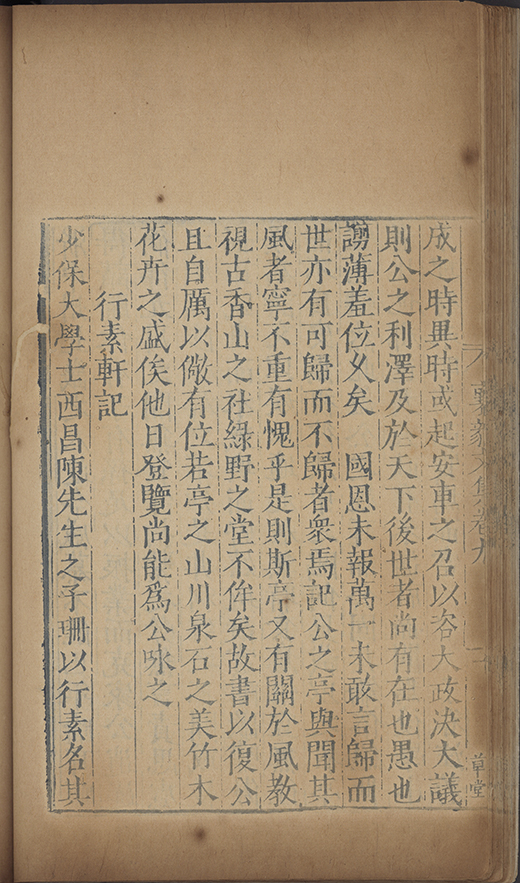 成之時異時或起安車之召以咨大政決大議
則公之利澤及於天下後世者尚有在也愚也
謭薄羞位乆矣　國恩未報萬一未敢言歸而
世亦有可歸而不歸者衆焉記公之亭與聞其
風者寧不重有愧乎是則斯亭又有關於風教
視古香山之社綠野之堂不侔矣故書以復公
且自厲以儆有位若亭之山川泉石之美竹木
花卉之盛俟他日登覽尚能爲公咏之
行素軒記
少保大學士西昌陳先生之子珊以行素名其
襄毅文集卷九
草堂